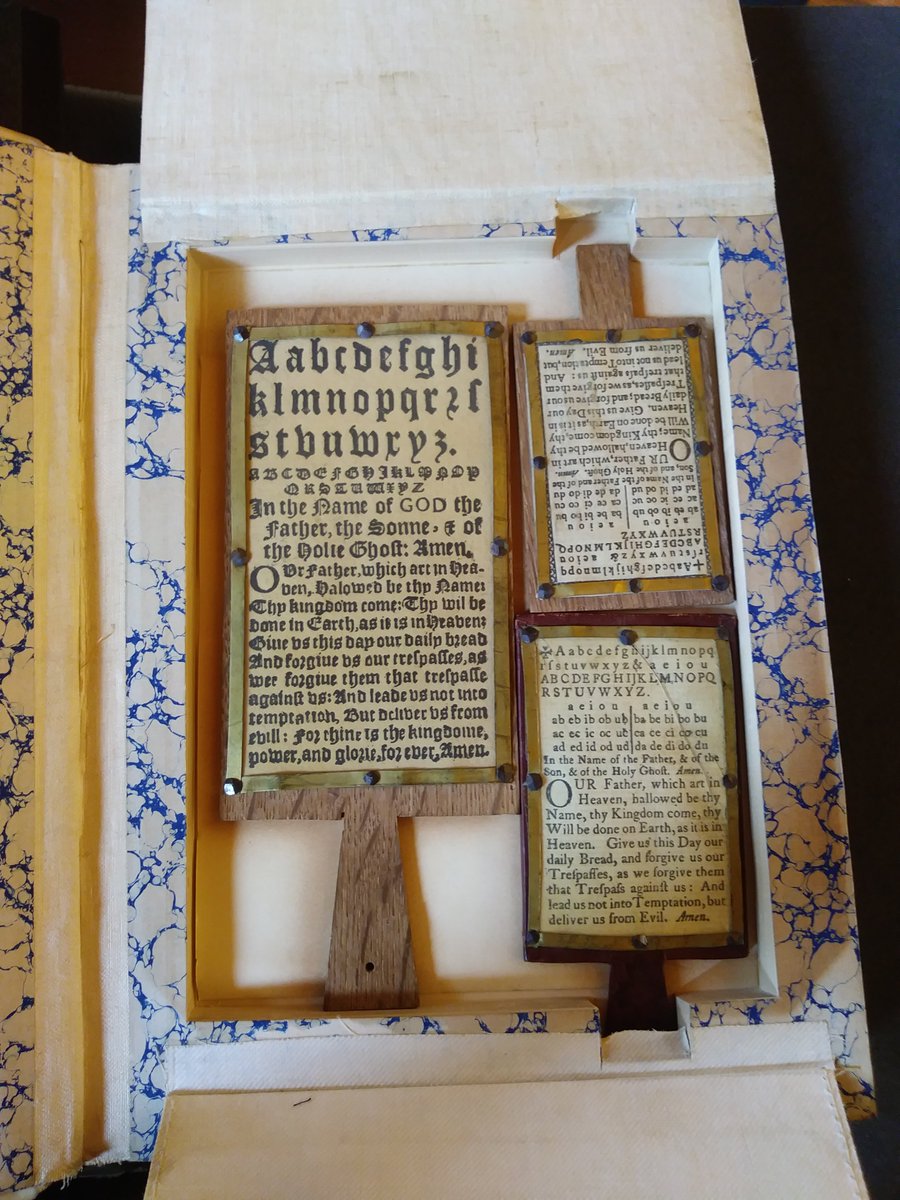 Aabcdefghi
klmnopqrꝛſ
stvuwxyz.
ABCDEFGHIJKLMNOP
QRSTUWXYZ
In the Name of GOD the
Father, the Sonne, & of
the Holie Ghoſt: Amen.
OUr Father, which art in Hea-
ven, Halowed be thy Name:
Thy kingdom come: Thy wil be
done in Earth, as it is in Heaven:
Giue vs this day our daily bread
And forgiue vs our treſpaſſes, as
wee forgiue them that treſpaſſe
againſt vs: And leade vs not into
temptation, But deliver vs from
evill: For thine is the kingdome,
power, and glorie, for ever, Amen.
+Aabcdefghijklmnopq
rſstuvwxyz &
ABCDEFGHIJKLMNOPQ
RSTUVWXYZ
a e i o u a e i o u
ab eb ib ob ub ba be bi bo bu
ac ec ic oc uc ca ce ci co cu
ad ed id od ud da de di do du
In the Name of the Father and of the
Son, and of the Holy Ghoſt. Amen.
OUR Father, which art in
Heaven, hallowed be thy
Name; thy Kingdom come, thy
Will be done on Earth, as it is in
Heaven. Give us this Day our
daily Bread; and forgive us our
Treſpaſſes, as we forgive them
that treſpaſs againſt us: And
lead us not into Temptation, but
deliver us from Evil. Amen.
✠Aabcdefghijklmnopq
rſstuvwxyz& a e i o u
ABCDEFGHIJKLMNOPQ
RSTUVWXYZ.
a e i o u a e i o u
ab eb ib ob ub ba be bi bo bu
ac ec ic oc uc ca ce ci co cu
ad ed id od ud da de di do du
In the Name of the Father, & of the
Son, & of the Holy Ghoſt. Amen.
OUR Father, which art in
Heaven, hallowed be thy
Name, thy Kingdom come, thy
Will be done on Earth, as it is in
Heaven. Give us this Day our
daily Bread, and forgive us our
Treſpaſſes, as we forgive them
that Treſpaſs againſt us: And
lead us not into Temptation, but
deliver us from Evil. Amen.